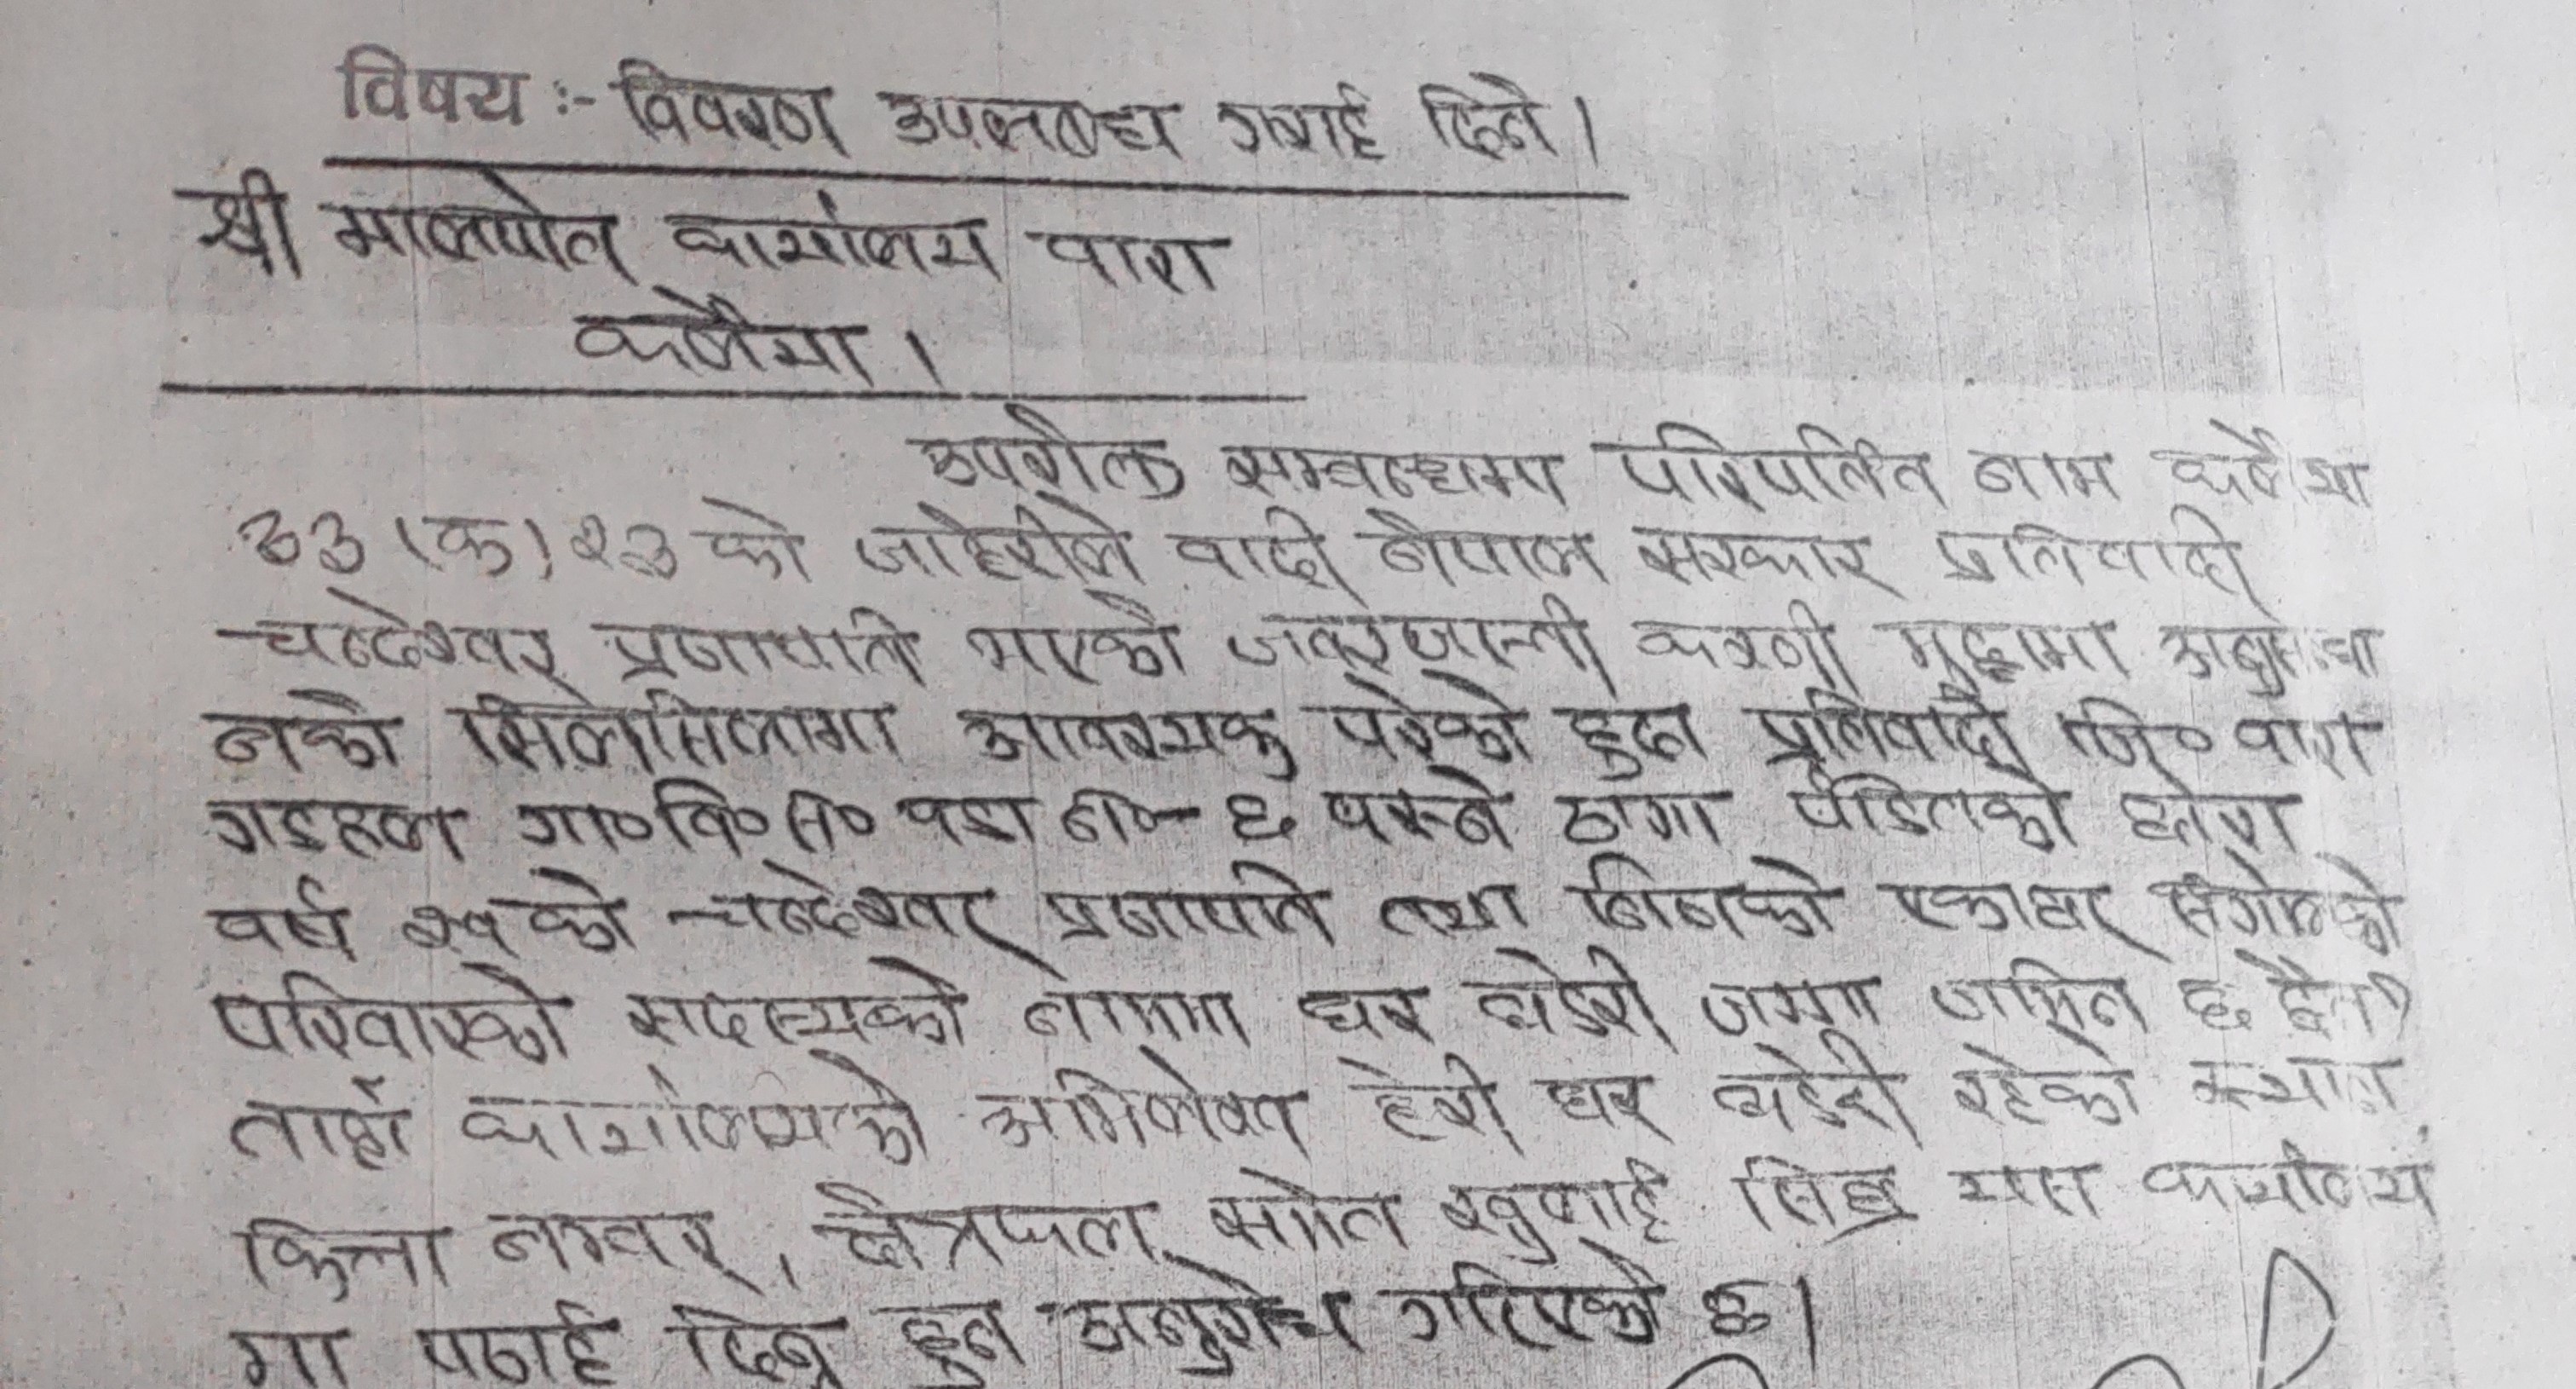 विषय :- विवरण उपलब्ध गराई दिने।
श्री मालपोत कार्यालय वारा
कलैया।
उपरोक्त सम्बन्धमा परिवर्तित नाम कलैया
33 (क) २३ को जाहेरीले वादी नेपाल सरकार प्रतिवादी
चन्देश्वर प्रजापति भएको जवरजस्ती करणी मुद्दामा अनुसन्धा
नको सिलसिलामा आवश्यक परेको हुदा प्रतिवादी जि० वारा
गडहल गा०वि०स० वडा नं- ६ बस्ने ठगा पंडितको छोरा
वर्ष को चन्देश्वर प्रजापति तथा निजको एकाघर संगोलको
परिवारको सदस्यको नाममा घर घडेरी जग्गा जमिन छ छैन?
ताहाँ कार्यालयको अभिलेख हेरी घर घडेरी रहेको स्थान
कित्ता नम्बर, क्षेत्रफल समेत खुलाई सिघ्र यस कार्यालय
मा पठाई दिनु हुन अनुरोध गरिएको छ।